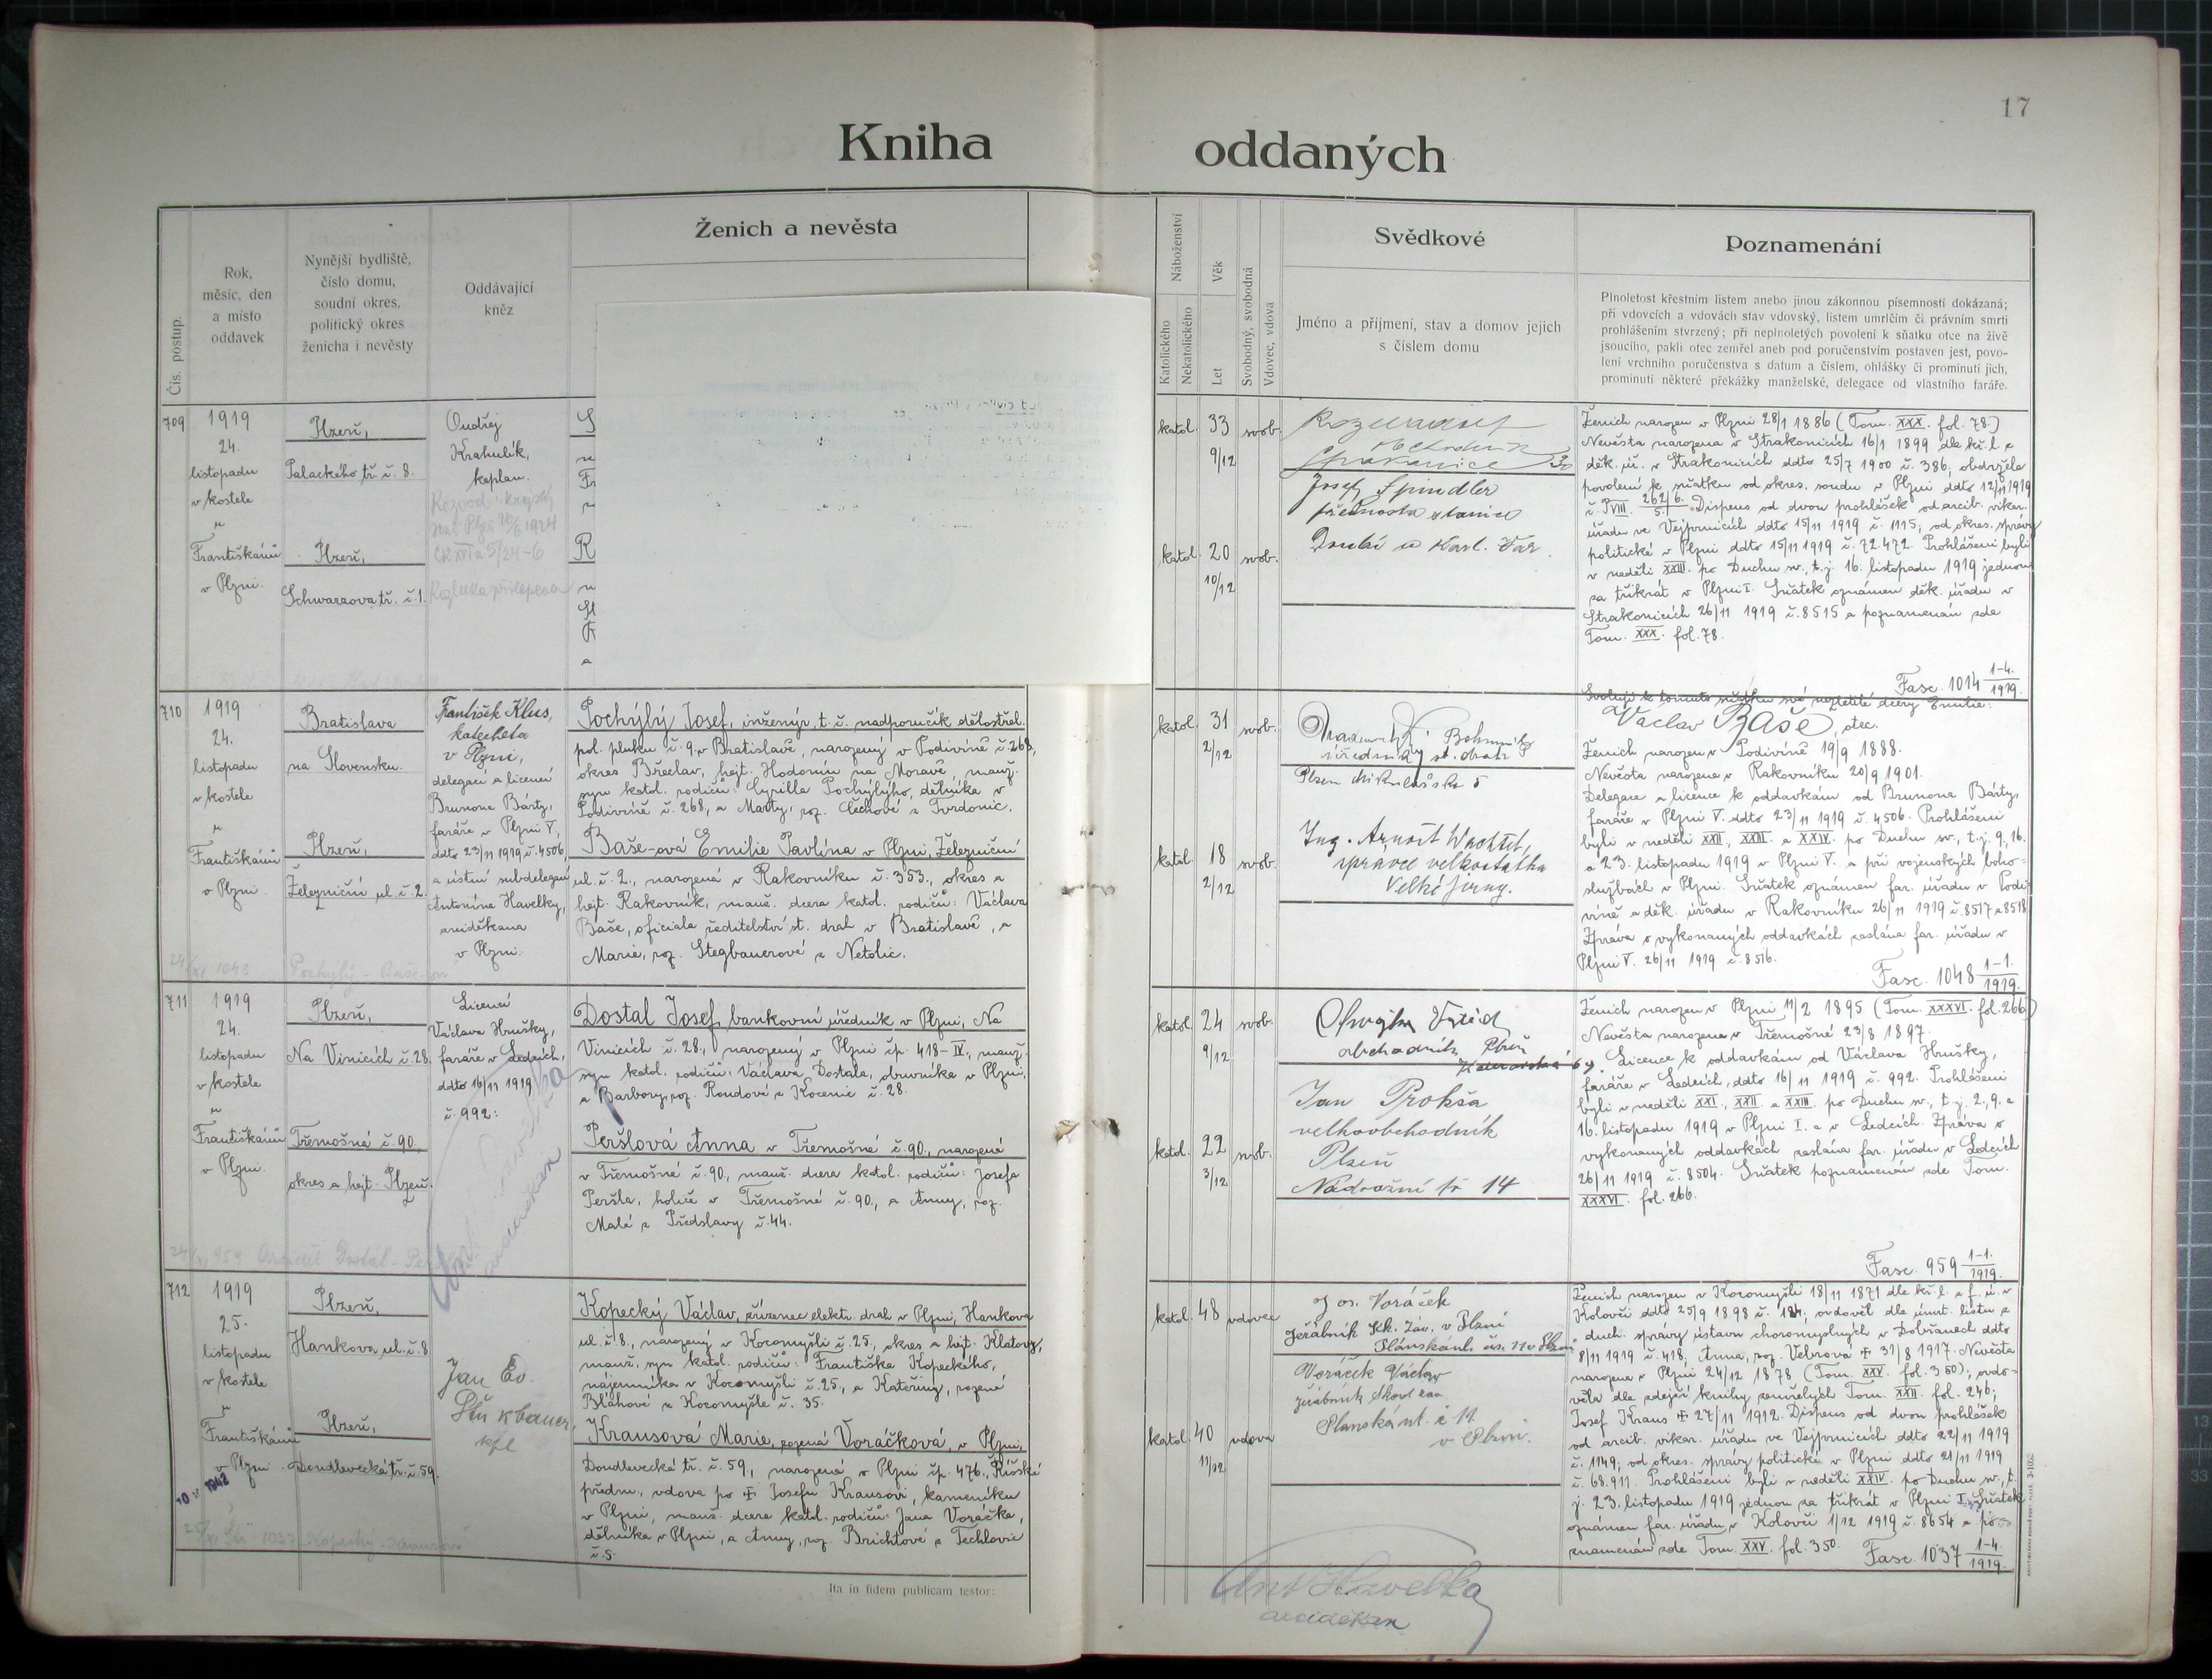 17
Kniha oddaných
Čís. postup.
Rok,
měsíc, den
a místo
oddavek
Nynější bydliště,
číslo domu,
soudní okres,
politický okres
ženicha i nevěsty
Oddávající
kněz
Ženich a nevěsta
Náboženství
Katolického
Nekatolického
Věk
Let
Svobodný, svobodná
Vdovec, vdova
Svědkové
Jméno a příjmení, stav a domov jejich
s číslem domu
Poznamenání
Plnoletost křestním listem anebo jinou zákonnou písemností dokázaná;
při vdovcích a vdovách stav vdovský, listem umrlčím či právním smrti
prohlášením stvrzený; při neplnoletých povolení k sňatku otce na živě
jsoucího, pakli otec zemřel aneb pod poručenstvím postaven jest, povo-
lení vrchního poručenstva s datum a číslem, ohlášky či prominutí jich,
prominutí některé překážky manželské, delegace od vlastního faráře.
709
1919
24.
listopadu
v kostele
u
Františkánů
v Plzni.
Plzeň,
Palackého tř. č. 8.
Plzeň,
Schwarzova tř. č. 1.
Ondřej
Krahulík,
kaplan.
katol. 33 svob.
9/12
katol. 20 svob.
10/12
Josef Spindler
přednosta stanice
Ženich narozen v Plzni 28/1 1886 (Tom. XXX. fol. 78.)
Nevěsta narozena v Strakonicích 16/1 1899 dle kř. l. z
děk. úř. v Strakonicích ddto 25/7 1900 č. 386, obdržela
povolení k sňatku od okres. soudu v Plzni ddto 12/11 1919
č. PVIII. 262/5. Dispens od dvou prohlášek od arcib. vikar.
úřadu ve Vejprnicích ddto 15/11 1919 č. 1115; od okres. správy
politické v Plzni ddto 15/11 1919 č. 72.472. Prohlášeni byli
v neděli XXIII. po Duchu sv., t. j. 16. listopadu 1919 jednou
za třikrát v Plzni I. Sňatek oznámen děk. úřadu v
Strakonicích 26/11 1919 č. 8515 a poznamenán zde
Tom. XXX. fol. 78.
Fasc. 1014 1-4./1919.
710
1919
24.
listopadu
v kostele
u
Františkánů
v Plzni.
Bratislava
na Slovensku.
Plzeň,
Železniční ul. č. 2.
František Klus,
katecheta
v Plzni,
delegací a licencí
Brunona Bárty,
faráře v Plzni V.,
ddto 23/11 1919 č. 4506,
a ústní subdelegací
Antonína Havelky,
arciděkana
v Plzni.
Pochýlý Josef, inženýr, t. č. nadporučík dělostřel.
pol. pluku č. 9, v Bratislavě, narozený v Podivíně č. 268,
okres Břeclav, hejt. Hodonín na Moravě, manž.
syn katol. rodičů: Cyrilla Pochýlýho, dělníka v
Podivíně č. 268, a Marty, roz. Čechové z Tvrdonic.
Baše-ová Emilie Pavlína v Plzni, Železniční
ul. č. 2., narozená v Rakovníku č. 353., okres a
hejt. Rakovník, manž. dcera katol. rodičů: Václava
Baše, oficiala ředitelství st. drah v Bratislavě, a
Marie, roz. Stegbauerové z Netolic.
katol. 31 svob.
2/12
katol. 18 svob.
2/12
Ing. Arnošt Wachtel,
správce velkostatku
Velké Jirny.
Svoluji k tomuto sňatku své nezletilé dcery Emilie:
Václav Baše, otec.
Ženich narozen v Podivíně 19/9 1888.
Nevěsta narozena v Rakovníku 20/9 1901.
Delegace a licence k oddavkám od Brunona Bárty,
faráře v Plzni V. ddto 23/11 1919 č. 4506. Prohlášeni
byli v neděli XXII., XXIII. a XXIV. po Duchu sv., t. j. 9., 16.
a 23. listopadu 1919 v Plzni V. a při vojenských boho-
službách v Plzni. Sňatek oznámen far. úřadu v Podi-
víně a děk. úřadu v Rakovníku 26/11 1919 č. 8517 a 8518.
Zpráva o vykonaných oddavkách zaslána far. úřadu v
Plzni V. 26/11 1919 č. 8516.
Fasc. 1048 1-1./1919.
711
1919
24.
listopadu
v kostele
u
Františkánů
v Plzni.
Plzeň,
Na Vinicích č. 28.
Třemošná č. 90,
okres a hejt. Plzeň.
Licencí
Václava Hrušky,
faráře v Ledcích,
ddto 16/11 1919
č. 992:
arciděkan
Dostal Josef, bankovní úředník v Plzni, Na
Vinicích č. 28., narozený v Plzni čp. 418-IV., manž.
syn katol. rodičů: Václava Dostala, obuvníka v Plzni,
a Barbory, roz. Roudové z Kocenic č. 28.
Peršlová Anna v Třemošné č. 90., narozená
v Třemošné č. 90., manž. dcera katol. rodičů: Josefa
Peršla, holiče v Třemošné č. 90., a Anny, roz.
Malé z Předslavy č. 44.
katol. 24 svob.
9/12
katol. 22 svob.
3/12
obchodník Plzeň
Jan Prokša
velkoobchodník
Plzeň
Nádražní tř 14
Ženich narozen v Plzni 11/2 1895 (Tom. XXXVI. fol. 266.)
Nevěsta narozena v Třemošné 23/8 1897.
Licence k oddavkám od Václava Hrušky,
faráře v Ledcích, ddto 16/11 1919 č. 992. Prohlášeni
byli v neděli XXI., XXII. a XXIII. po Duchu sv., t. j. 2., 9. a
16. listopadu 1919 v Plzni I. a v Ledcích. Zpráva o
vykonaných oddavkách zaslána far. úřadu v Ledcích
26/11 1919 č. 8504. Sňatek poznamenán zde Tom.
XXXVI. fol. 266.
Fasc. 959 1-1./1919.
712
1919
25.
listopadu
v kostele
u
Františkánů
v Plzni.
Plzeň,
Hankova ul. č. 8
Plzeň,
Doudlevecká tř. č. 59.
Jan Ev.
kpl
Kopecký Václav, zřízenec elektr. drah v Plzni, Hankova
ul. č. 8., narozený v Kocomyšli č. 25., okres a hejt. Klatovy,
manž. syn katol. rodičů: Františka Kopeckého,
nájemníka v Kocomyšli č. 25., a Kateřiny, rozené
Bláhové z Kocomyšle č. 35.
Krausová Marie, rozená Voráčková, v Plzni,
Doudlevecká tř. č. 59, narozená v Plzni čp. 476., Říšské
předm., vdova po ‡ Josefu Krausovi, kameníku
v Plzni, manž. dcera katol. rodičů: Jana Voráčka,
dělníka v Plzni, a Anny, roz. Brichtové z Techlovic
č. 5.
katol. 48 vdovec
katol. 40 vdova
11/12
Jos. Voráček
jeřábník Šk. záv. v Plzni
Voráček Václav
Plánská ul. č 11
v Plzni.
Ženich narozen v Kocomyšli 18/11 1871 dle kř. l. z f. ú. v
Kolovči ddto 25/9 1898 č. 184, ovdověl dle úmrt. listu z
duch. správy ústavu choromyslných v Dobřanech ddto
8/11 1919 č. 418, Anna, roz. Velvrová ‡ 31/8 1917. Nevěsta
narozena v Plzni 24/12 1878 (Tom. XXV. fol. 350); ovdo-
věla dle zdejší knihy zemřelých Tom. XXII. fol. 246;
Josef Kraus ‡ 27/11 1912. Dispens od dvou prohlášek
od arcib. vikar. úřadu ve Vejprnicích ddto 22/11 1919
č. 1149; od okres. správy politické v Plzni ddto 21/11 1919
č. 68.911. Prohlášeni byli v neděli XXIV. po Duchu sv., t.
j. 23. listopadu 1919 jednou za třikrát v Plzni I. Sňatek
oznámen far. úřadu v Kolovči 1/12 1919 č. 8654 a po-
znamenán zde Tom. XXV. fol. 350.
Fasc. 1037 1-4./1919.
Ita in fidem publicam testor:
Ant Havelka
arciděkan